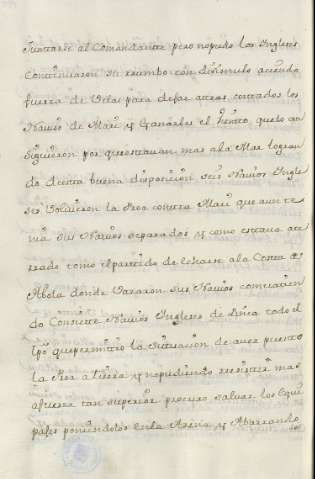 Juntarse al Comandante pero no pudo los Ingleses
Continuaron su rumbo con disimulo aciendo
fuerza de Vela para dejar atras cortados los
Navios de Mari y Ganarles el Viento, que lo con
siguieron por que estavan mas a la Mar logran
do de esta buena disposicion seis Navios Ingle
ses Bolvieron la Proa contra Mari que aun te
nia sus Navios separados, y como estava ate
rrado tomo el partido de echarse a la Costa de
Abola donde Vararon sus Navios comvatien
do Con siete Navios Ingleses de Linea todo el
tpo que permitio la Situacion de aver puesto
la Proa a tierra, y no pudiendo resistir mas
a fuerza tan superior procuro salvar los Equi
pajes poniendolos en la Arena, y Abarrando